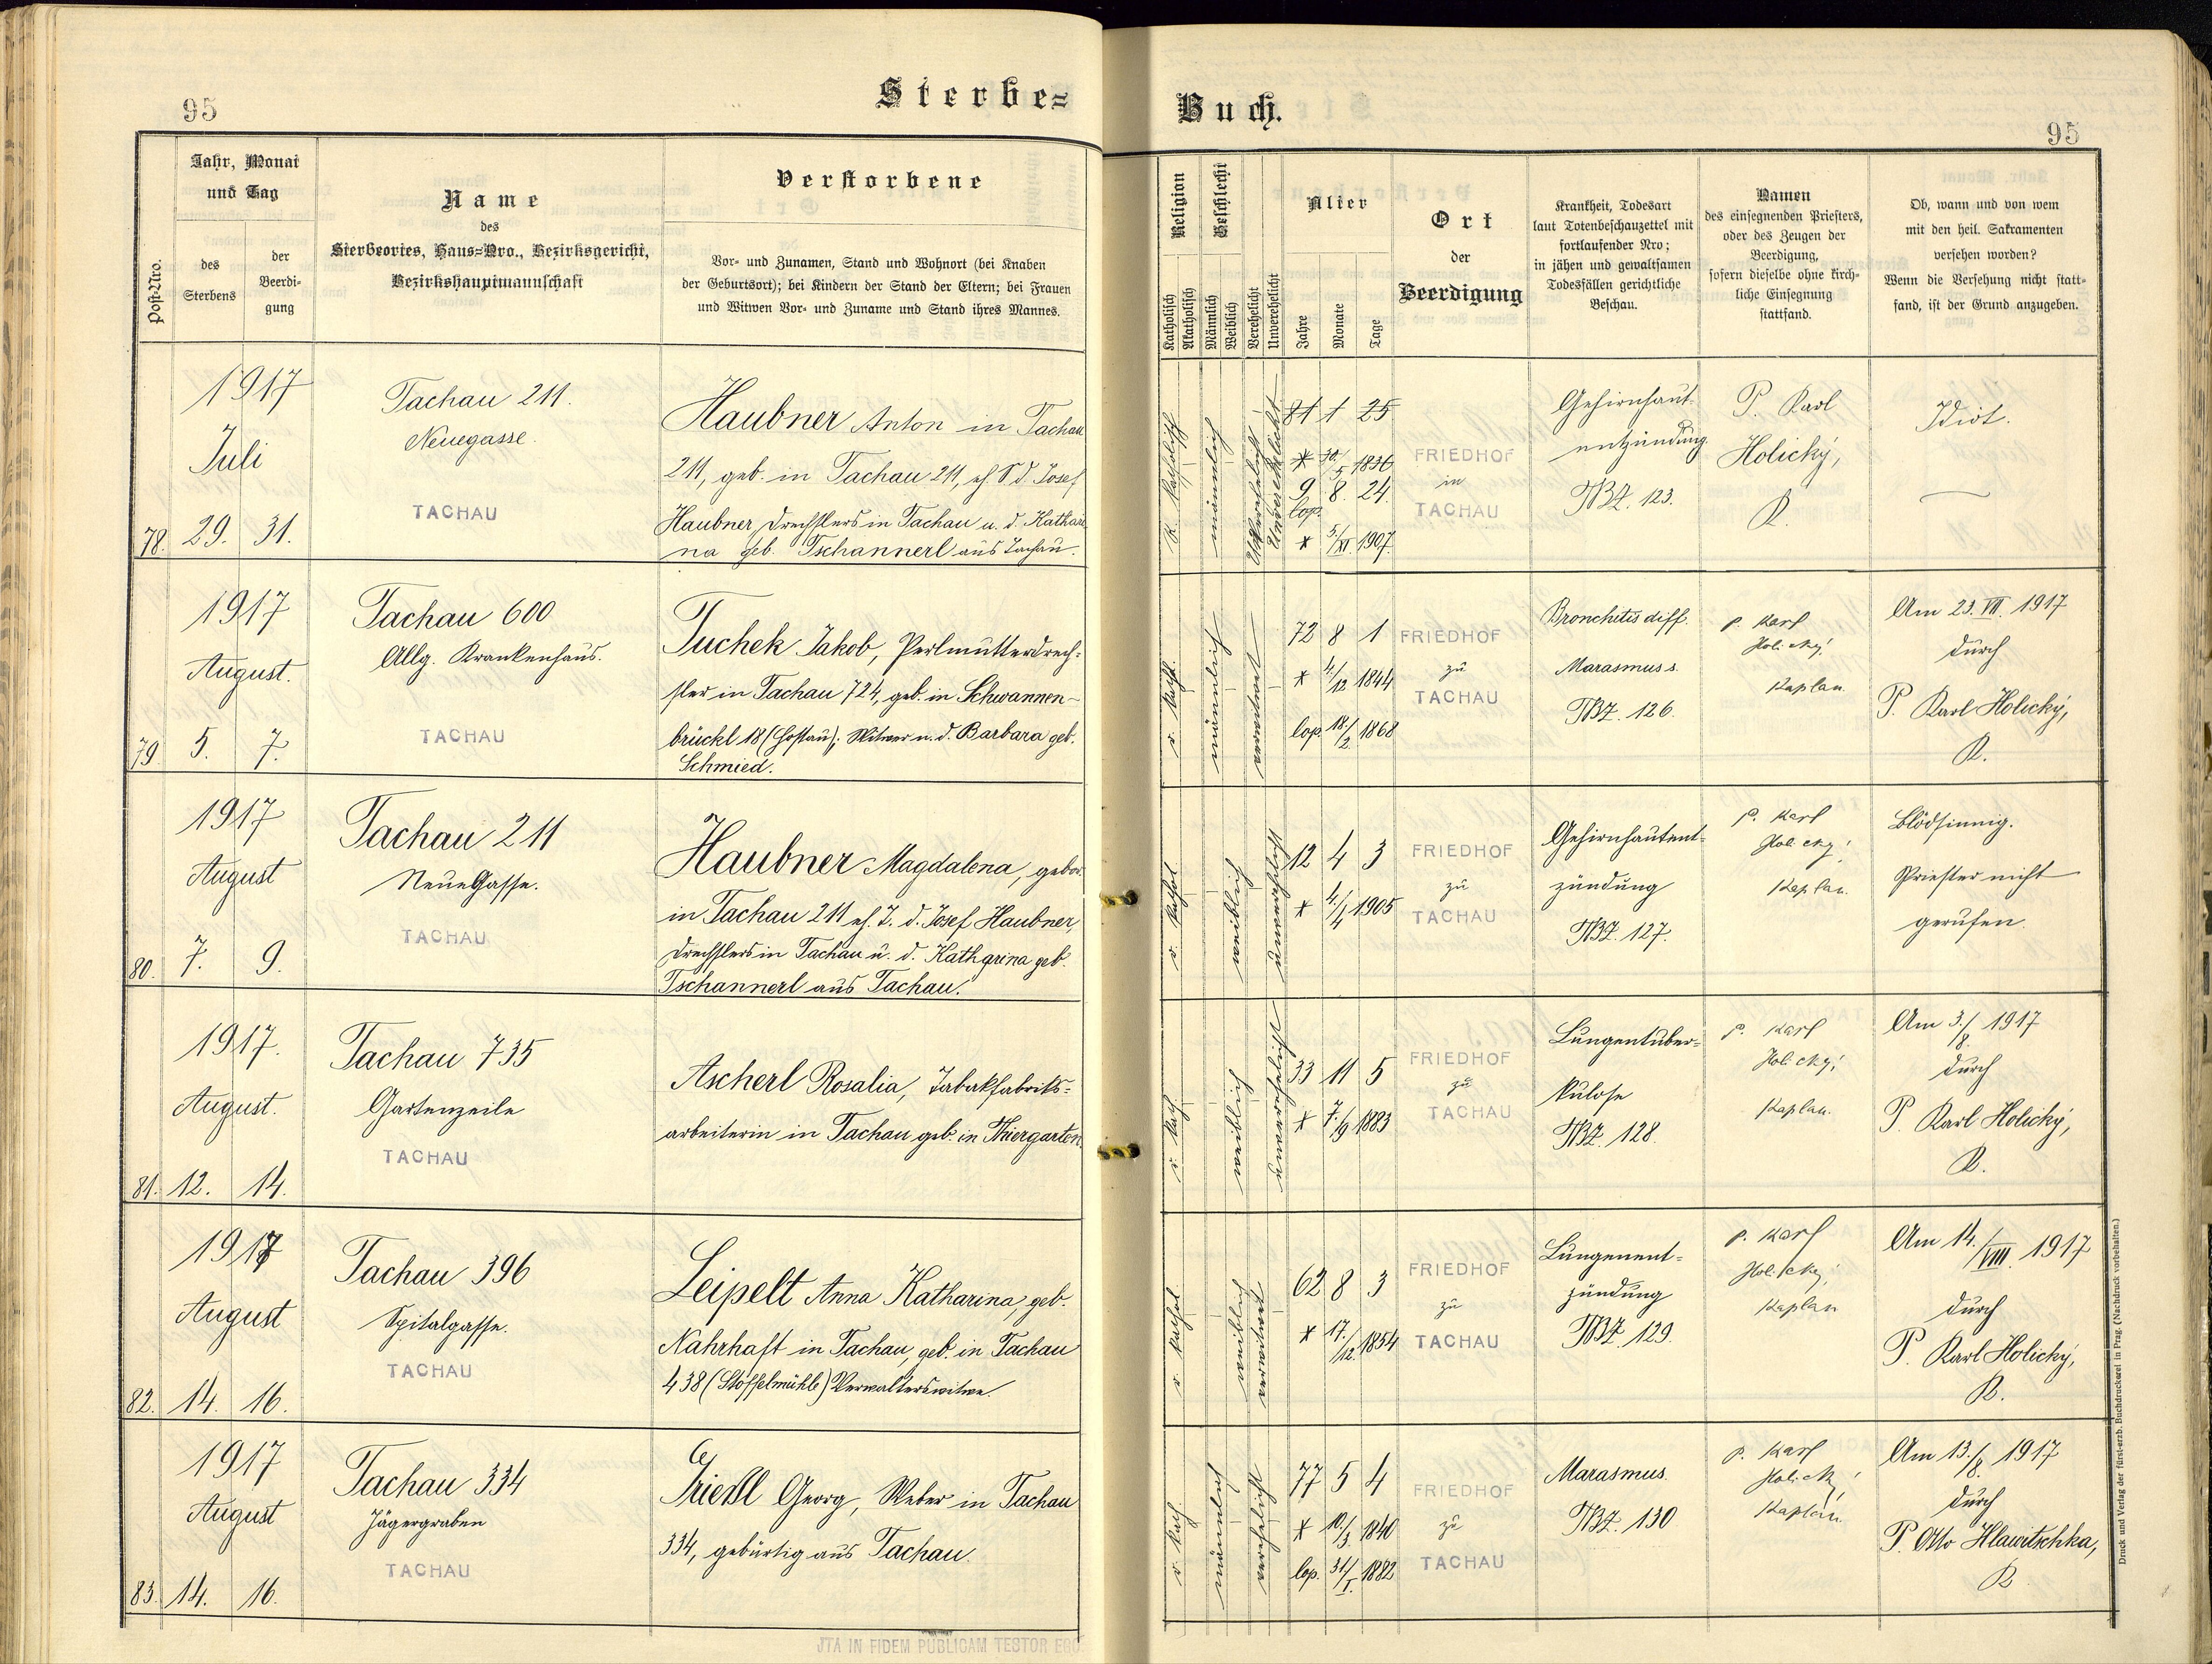 95
Sterbe=
Jahr, Monat
und Tag
Post=Nro.
des
Sterbens
der
Beerdi=
gung
Name
des
Sterbeortes, Haus=Nro., Bezirksgericht,
Bezirkshauptmannschaft
Verstorbene
Vor= und Zunamen, Stand und Wohnort (bei Knaben
der Geburtsort); bei Kindern der Stand der Eltern; bei Frauen
und Witwen Vor= und Zuname und Stand ihres Mannes.
1917
Juli
78. 29. 31.
Tachau 211.
Neuegasse.
TACHAU
Haubner Anton in Tachau
211, geb. in Tachau 211, eh. S. d. Josef
Haubner, Drechslers in Tachau u. d. Katha=
na geb. Tschannerl aus Tachau.
1917
August.
79 5. 7.
Tachau 600
Allg. Krankenhaus.
TACHAU
Tuchek Jakob, Perlmutterdrech=
sler in Tachau 724, geb. in Schwannen=
brückl 18 (Hostau); Witwer n. d. Barbara geb.
Schmied.
1917
August
80. 7. 9.
Tachau 211
Neue Gasse.
TACHAU
Haubner Magdalena, gebor.
in Tachau 211 eh. T. d. Josef Haubner,
Drechslers in Tachau u. d. Katharina geb.
Tschannerl aus Tachau.
1917.
August.
81. 12. 14.
Tachau 735
Gartenzeile
TACHAU
Ascherl Rosalia, Tabakfabriks=
arbeiterin in Tachau geb. in Thiergarten.
1917
August
82. 14. 16.
Tachau 396
Spitalgasse.
TACHAU
Leipelt Anna Katharina, geb.
Nahrhaft in Tachau, geb. in Tachau
438 (Stoffelmühle) Verwalterswitwe.
1917
August
83. 14. 16.
Tachau 334
Jägergraben
TACHAU
Georg, Weber in Tachau
334, gebürtig aus Tachau.
JTA IN FIDEM PUBLICAM TESTOR EGO
Buch.
95
Religion
Geschlecht
Katholisch
Akatholisch
Männlich
Weiblich
Verehelicht
Unverehelicht
Alter
Jahre
Monate
Tage
Ort
der
Beerdigung
Krankheit, Todesart
laut Totenbeschauzettel mit
fortlaufender Nro;
in jähen und gewaltsamen
Todesfällen gerichtliche
Beschau.
Namen
des einsegnenden Priesters,
oder des Zeugen der
Beerdigung,
sofern dieselbe ohne kirch=
liche Einsegnung
stattfand.
Ob, wann und von wem
mit den heil. Sakramenten
versehen worden?
Wenn die Versehung nicht statt=
fand, ist der Grund anzugeben.
R. Katholisch
männlich
Unverehelicht
81 1 25
* 30./5 1836
9. 8. 24.
lop.
* 5./XI. 1907.
FRIEDHOF
in
TACHAU
Gehirnhaut=
entzündung.
TBZ. 123.
P. Karl
Holický,
K.
Idiot.
r. kath.
männlich
verwitwet
72 8 1
* 4./12 1844
lop. 18/2 1868
FRIEDHOF
zu
TACHAU
Bronchitis diff.
Marasmus s.
TBZ. 126.
P. Karl
Holický,
Kaplan.
Am 23. VII. 1917
durch
P. Karl Holický,
K.
r. kathol.
weiblich
unverehelicht
12 4 3
* 4./4 1905
FRIEDHOF
zu
TACHAU
Gehirnhautent=
zündung
TBZ. 127.
P. Karl
Holický,
Kaplan.
Blödsinnig.
Priester nicht
gerufen.
r. kath.
weiblich
unverehelicht
33 11 5
* 7./9 1883
FRIEDHOF
zu
TACHAU
Lungentuber=
kulose
TBZ. 128.
P. Karl
Holický,
Kaplan.
Am 3./8. 1917
durch
P. Karl Holický,
K.
r. kathol.
weiblich
verwitwet
62 8 3
* 17./12. 1854
FRIEDHOF
zu
TACHAU
Lungenent=
zündung
TBZ. 129.
P. Karl
Holický,
Kaplan
Am 14./VIII. 1917
durch
P. Karl Holický,
K.
r. kath.
männlich
verehelicht
77 5 4
* 10./3. 1840
lop. 31/I. 1882
FRIEDHOF
zu
TACHAU
Marasmus.
TBZ. 130
P. Karl
Holický,
Kaplan.
Am 13./8. 1917
durch
P. Otto Hlawitschka,
K.
Druck und Verlag der fürst-erzb. Buchdruckerei in Prag. (Nachdruck vorbehalten.)